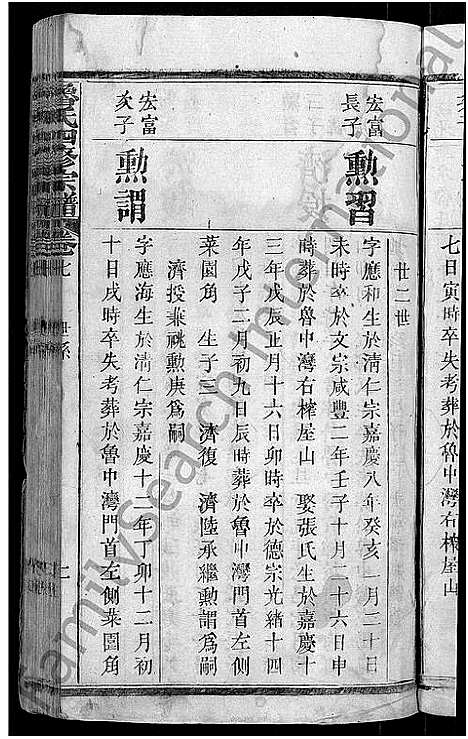 七日寅時卒失考葬於魯中灣右榨屋山
廿二世
宏富
長子
勲習
字應和生於清仁宗嘉慶八年癸亥一月二十日
未時卒於文宗咸豐二年壬子十月二十六日申
時葬於魯中灣右榨屋山 娶張氏生於嘉慶十
三年戊辰正月十六日卯時卒於德宗光緒十四
年戊子二月初九日辰時葬於魯中灣門首左側
菜園角 生子三 濟復 濟陸承繼勲謂爲嗣
濟授兼祧勲庚爲嗣
宏富
次子
勲謂
字應海生於清仁宗嘉慶十二年丁卯十二月初
十日戌時卒失考葬於魯中灣門首左側菜園角
氏四修宗譜
卷七
世系
FamilySearch International